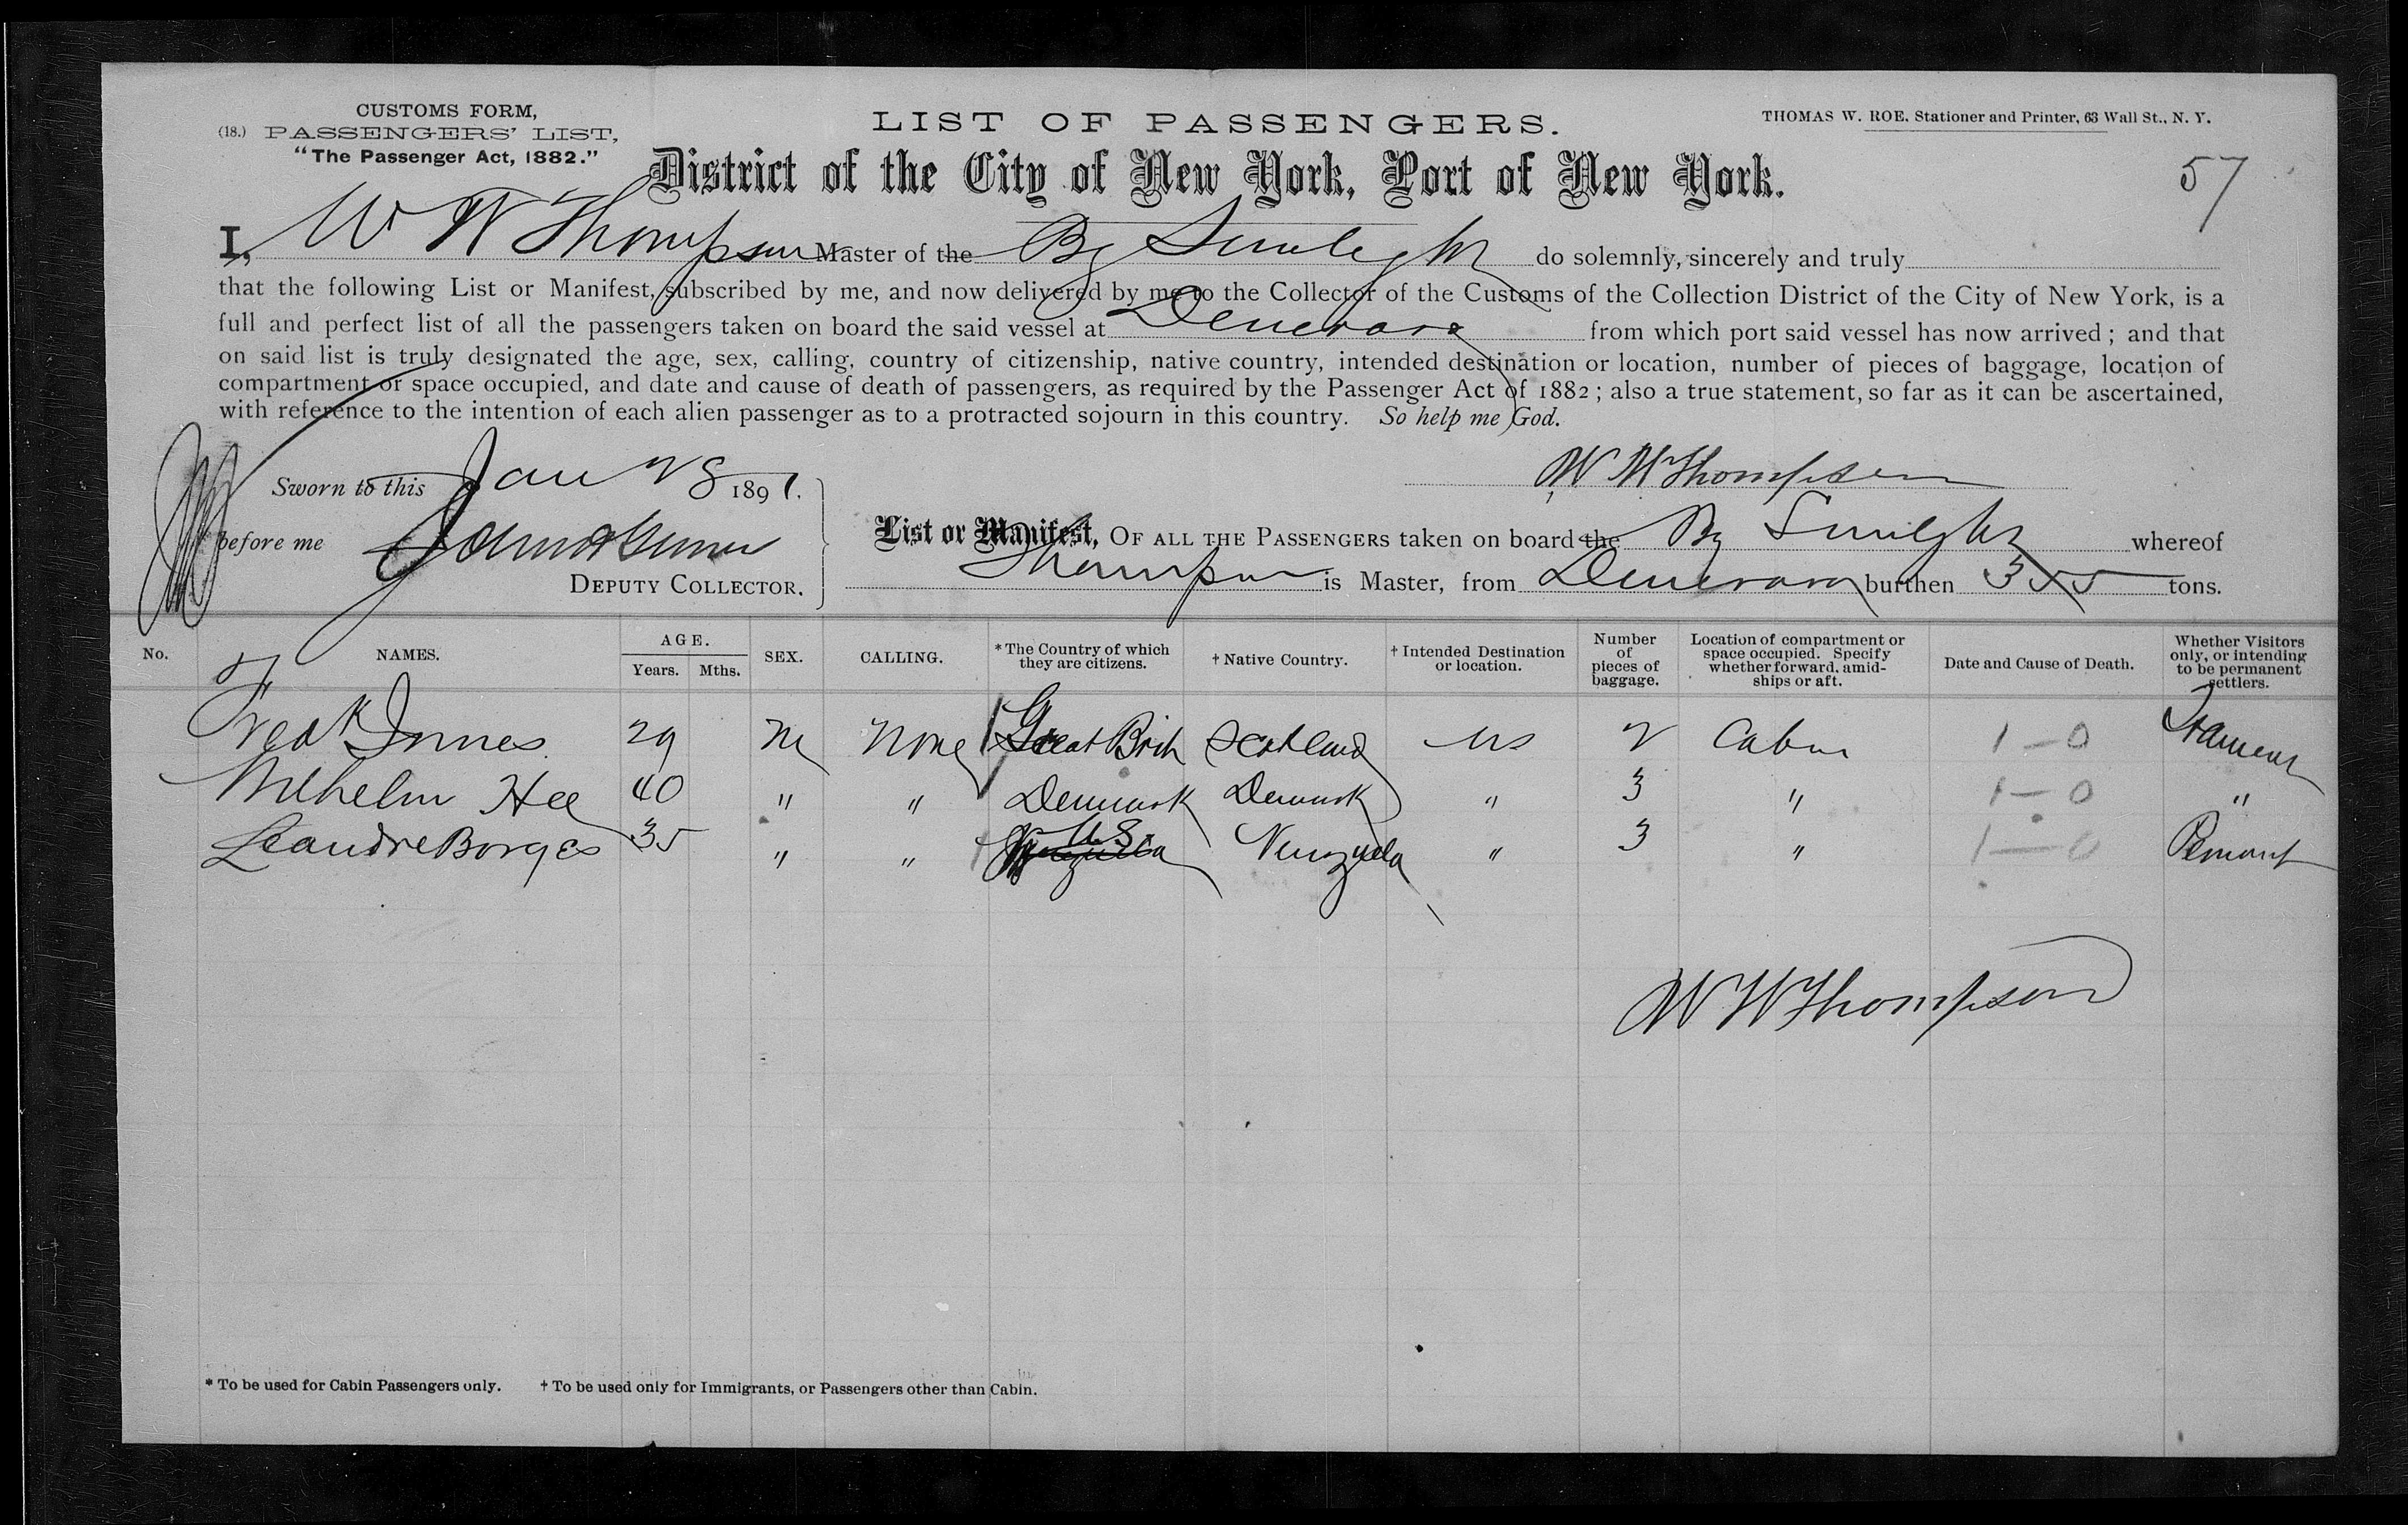 CUSTOMS FORM,
(18.) PASSENGERS' LIST,
"The Passenger Act, 1882."
LIST OF PASSENGERS.
THOMAS W. ROE, Stationer and Printer, 63 Wall St., N. Y.
District of the City of New York, Port of New York.
57
I, W W Thompson Master of the Bg Sunlight do solemnly, sincerely and truly
that the following List or Manifest, subscribed by me, and now delivered by me to the Collector of the Customs of the Collection District of the City of New York, is a
full and perfect list of all the passengers taken on board the said vessel at Demerara from which port said vessel has now arrived; and that
on said list is truly designated the age, sex, calling, country of citizenship, native country, intended destination or location, number of pieces of baggage, location of
compartment or space occupied, and date and cause of death of passengers, as required by the Passenger Act of 1882; also a true statement, so far as it can be ascertained,
with reference to the intention of each alien passenger as to a protracted sojourn in this country. So help me God.
W W Thompson
Sworn to this Jan 28 1891.
before me
DEPUTY COLLECTOR.
List or Manifest, OF ALL THE PASSENGERS taken on board the Bg Sunlight whereof
Thompson is Master, from Demerara burthen 355 tons.
No. NAMES. AGE. Years. Mths. SEX. CALLING. *The Country of which they are citizens. † Native Country. † Intended Destination or location. Number of pieces of baggage. Location of compartment or space occupied. Specify whether forward, amidships or aft. Date and Cause of Death. Whether Visitors only, or intending to be permanent settlers.
Fredk Innes 29 M None Great Brit Scotland US 2 Cabin 1-0 Transient
Wilhelm Hee 40 " " Denmark Denmark " 3 " 1-0 "
Leandre Borges 35 " " U.S. Venezuela " 3 " 1-0 Permant
W W Thompson
* To be used for Cabin Passengers only. † To be used only for Immigrants, or Passengers other than Cabin.